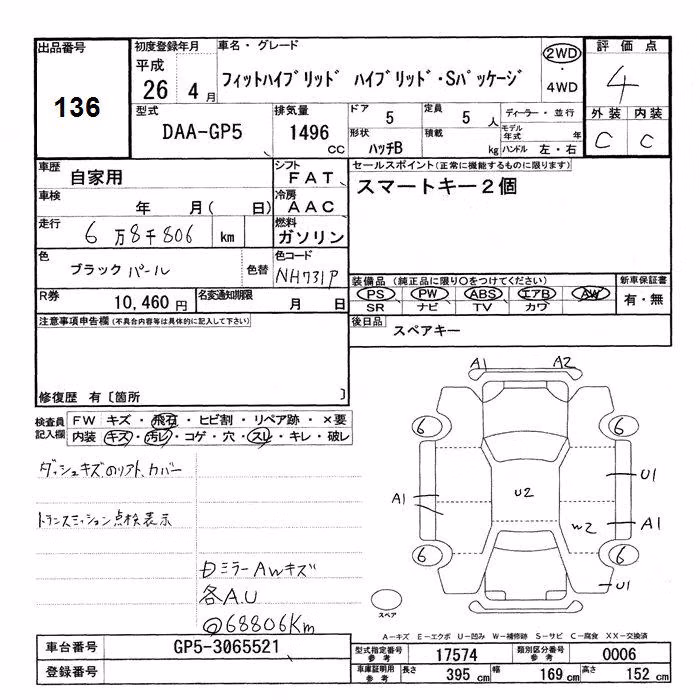 出品番号
136
初度登録年月
平成
26年 4月
車名・グレード
フィットハイブリッド ハイブリッド・Sパッケージ
2WD
・
4WD
評価点
4
外装 内装
C C
型式
DAA-GP5
排気量
1496
CC
ドア
5
定員
5 人
ディーラー・並行
形状
ハッチB
積載
kg
モデル年式
年
ハンドル 左・右
車歴
自家用
シフト
FAT
セールスポイント(正常に機能するものに限ります)
スマートキー2個
車検
年 月( 日)
冷房
AAC
走行
6万8千806 km
燃料
ガソリン
色
ブラックパール
色替
色コード
NH731P
装備品(純正品に限り〇をつけてください)
新車保証書
PS PW ABS エアB AW
SR ナビ TV カワ
有・無
R券
10,460円
名変通知期限
月 日
後日品
スペアキー
注意事項申告欄(不具合内容等は具体的に記入して下さい)
修復歴 有〔箇所 〕
検査員記入欄
FW キズ・飛石・ヒビ割・リペア跡・×要
内装 キズ・汚レ・コゲ・穴・スレ・キレ・破レ
トランスミッション点検表示
ミラーAWキズ
各A.U
@68806Km
A1 A2
6 6
A1
U2
U1
W2
A1
6 6
U1
スペア
A-キズ E-エクボ U-凹み W-補修跡 S-サビ C-腐食 XX-交換済
車台番号
GP5-3065521
登録番号
型式指定番号
参考
17574
類別区分番号
参考
0006
車庫証明用
参考
長さ 395 cm 幅 169 cm 高さ 152 cm